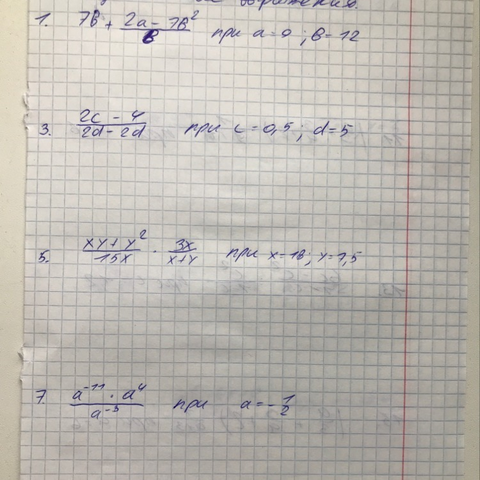 выражения.
1. 7в + (2а - 7в²)/в при а = 9; в = 12
3. (2с - 4)/(2d - 2d) при с = 0,5; d = 5
5. (xy + y²)/15x · 3x/(x+y) при x = 18; y = 7,5
7. (a⁻¹¹ · a⁴)/a⁻³ при a = -1/2